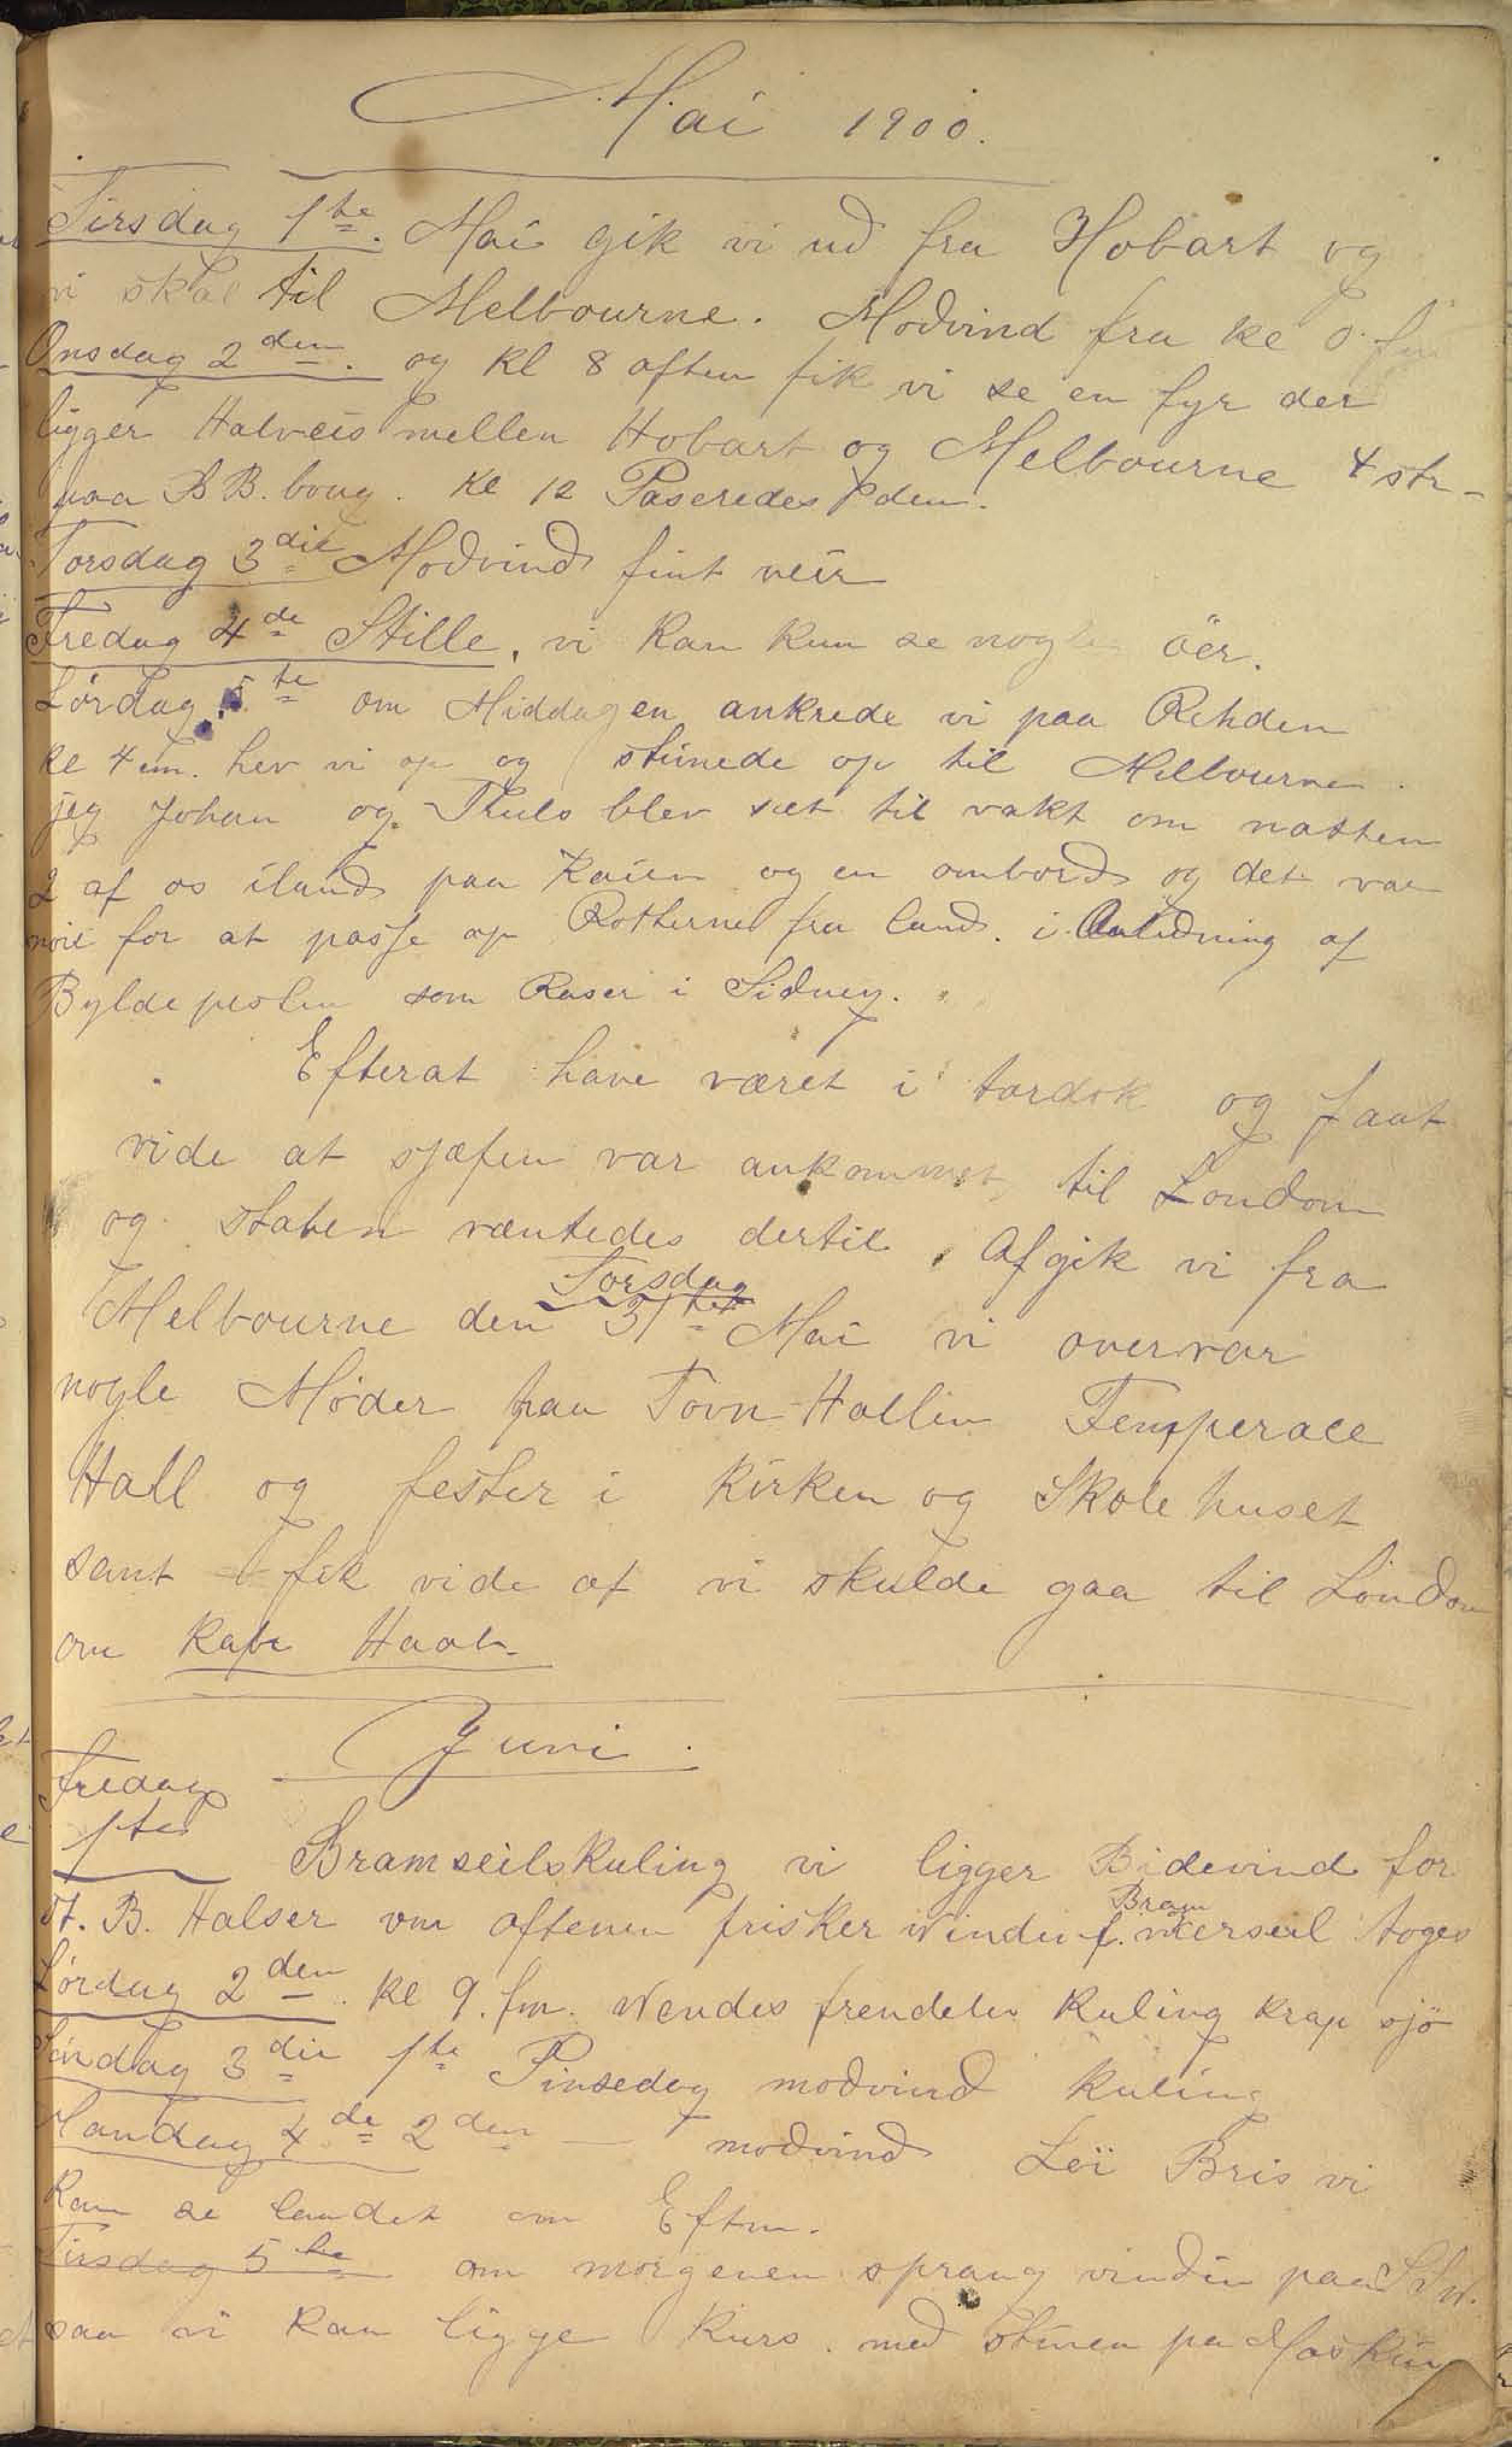 Mai 1900.
Tirsdag 1te. Mai gik vi ud fra Hobart og
vi skal til Melbourne. Modvind fra kl
Onsdag 2den. og kl 8 aften fik vi se en fyr der
ligger Halveis mellen Hobart og Melbourne 4 str-
paa B B. boug. kl 12 Paseredes den.
Torsdag 3die Modvind fint veir
Fredag 4de Stille, vi kan kun se nogle öer.
Lørdag 5te om Middagen ankrede vi paa Rehden
kl 4 em. hev vi op og stimede op til Melbourne.
jeg Johan og Truls blev sat til vakt om natten
2 af os iland paa Kaien og en ombord og det var
for at passe op Rotterne fra land. i Anledning af
Byldepesten som Raser i Sidney.
Efterat have været i tordok og faat
vide at sjæfen var ankommet til London
og staben væntedes dertil, Afgik vi fra
Torsdag
Melbourne den 31te Mai vi overvar
nogle Møder paa Tovn-Hallen Temperace
Hall og fester i Kirken og Skole huset
samt fik vide at vi skulde gaa til London
om Kap Haab.
Juni.
Fredag
1te Bramseilskuling vi ligger Bidevind for
Bram
St. B. Halser om aftenen frisker Winden f. merseil toges
Lørdag 2den. kl 9. fm. Wendes frendeles Kuling krap sjö
Søndag 3die 1te Pinsedag modvind kuling
Mandag 4de 2den — modvind Löi Bris vi
kan se landet om Eftm.
Tirsdag 5te om morgenen sprang vinden paa S.W.
saa vi kan ligge Kurs. med stimen pa Maskin